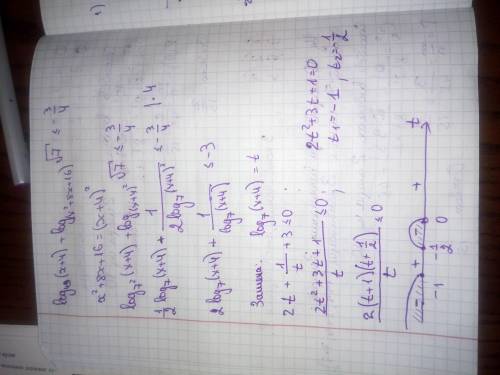 log₄₉(x+4) + log_(x²+8x+16) √7 ≤ -3/4
x²+8x+16 = (x+4)²
log_7² (x+4) + log_(x+4)² √7 ≤ -3/4
1/2 log₇(x+4) + 1/(2 log₇(x+4)²) ≤ -3/4 | ·4
2 log₇(x+4) + 1/(log₇(x+4)) ≤ -3
Замена: log₇(x+4) = t
2t + 1/t + 3 ≤ 0;
(2t²+3t+1)/t ≤ 0; 2t²+3t+1=0
t₁=-1; t₂=-1/2
2(t+1)(t+1/2)/t ≤ 0
- + - + t
-1 -1/2 0